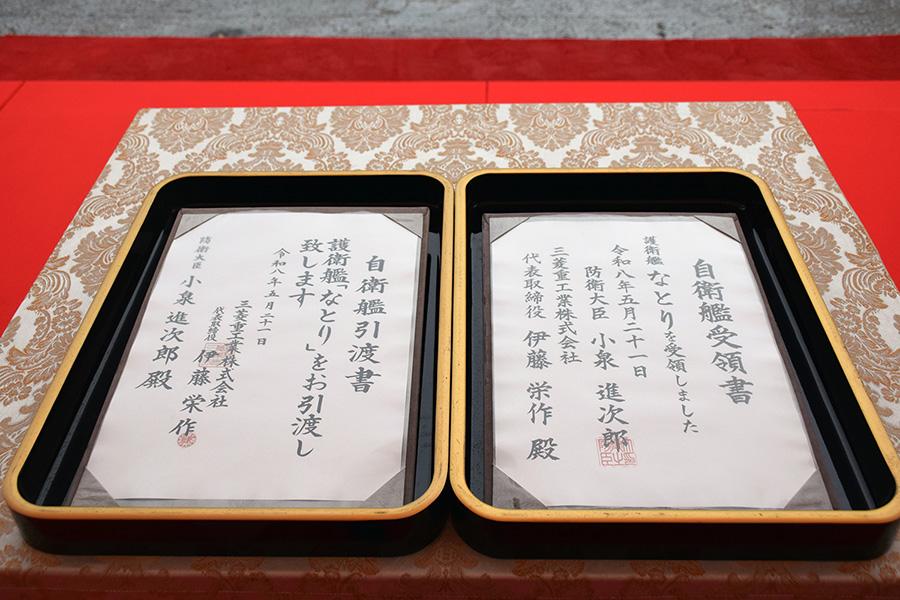 自衛艦引渡書
護衛艦「なとり」をお引渡し
致します
令和八年五月二十一日
三菱重工業株式会社
代表取締役 伊藤 栄作
防衛大臣 小泉 進次郎 殿
自衛艦受領書
護衛艦 なとりを受領しました
令和八年五月二十一日
防衛大臣 小泉 進次郎
三菱重工業株式会社
代表取締役 伊藤 栄作 殿